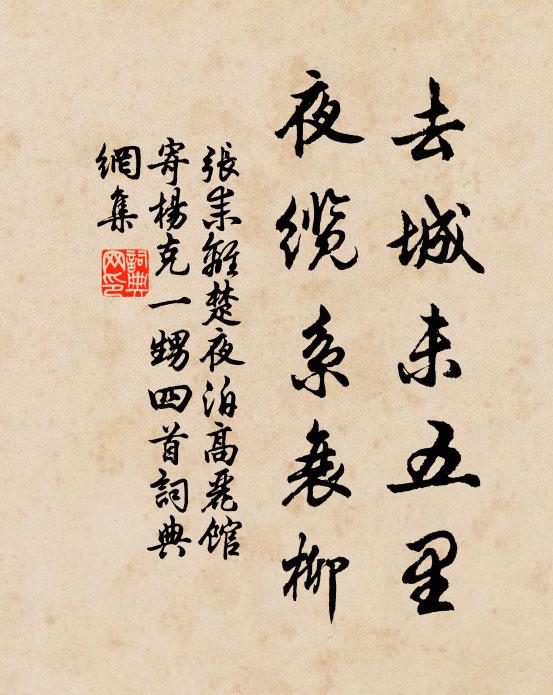 去城未五里
夜缆系衰柳
張耒離楚夜泊高麗館
寄楊克一甥四首詞典
網集
詞典
网印